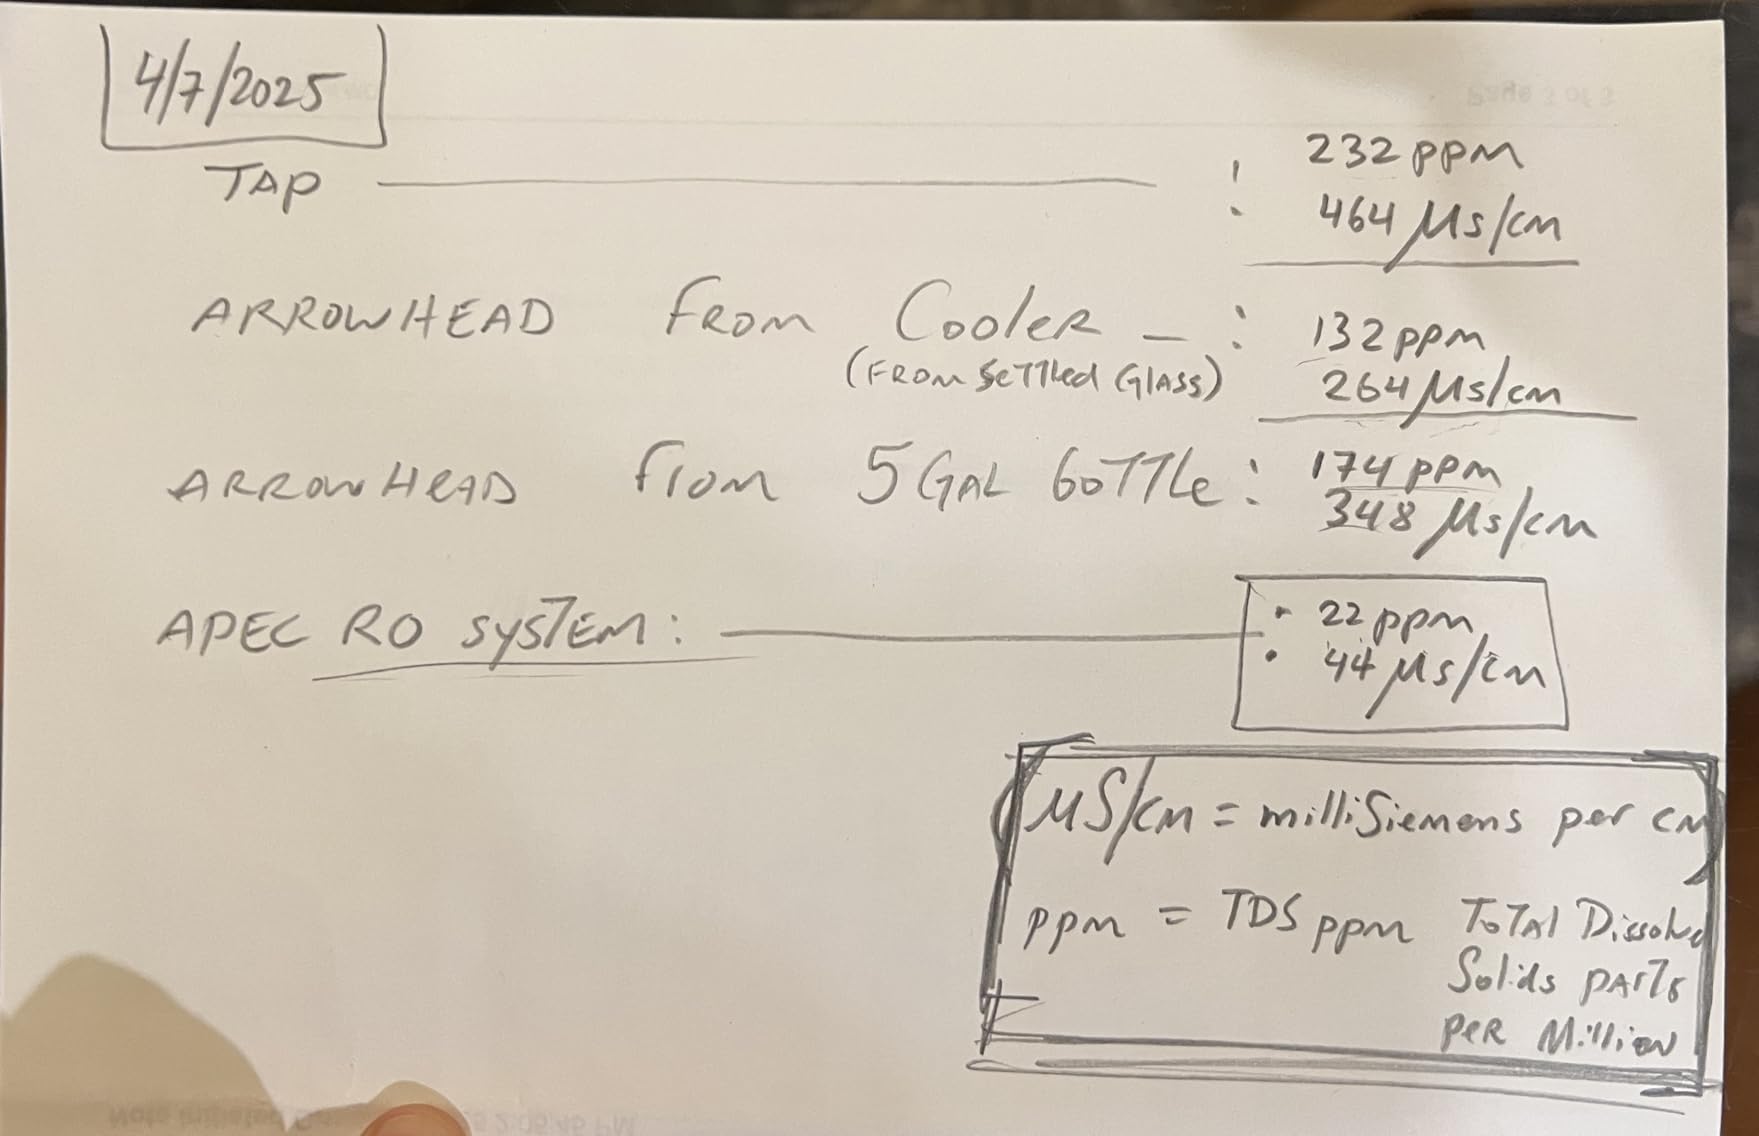 4/7/2025
TAP : 232 ppm
464 µs/cm
ARROWHEAD From Cooler - : 132 ppm
(From Settled Glass) 264 µs/cm
ARROWHEAD From 5 Gal bottle : 174 ppm
348 µs/cm
APEC RO SYSTEM : 22 ppm
44 µs/cm
µS/cm = milliSiemens per cm
ppm = TDS ppm Total Dissolved
Solids parts
per Million
Page 2 of 2
Note Initiated 2:06:46 PM